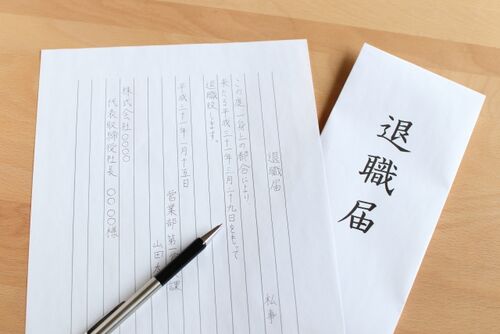 退職届
退職届
私事
この度、一身上の都合により、
来たる平成三十一年三月二十九日をもって
退職致します。
平成三十一年一月十五日
営業部 第一 課
山田
株式会社〇〇〇〇
代表取締役社長 〇〇〇〇様